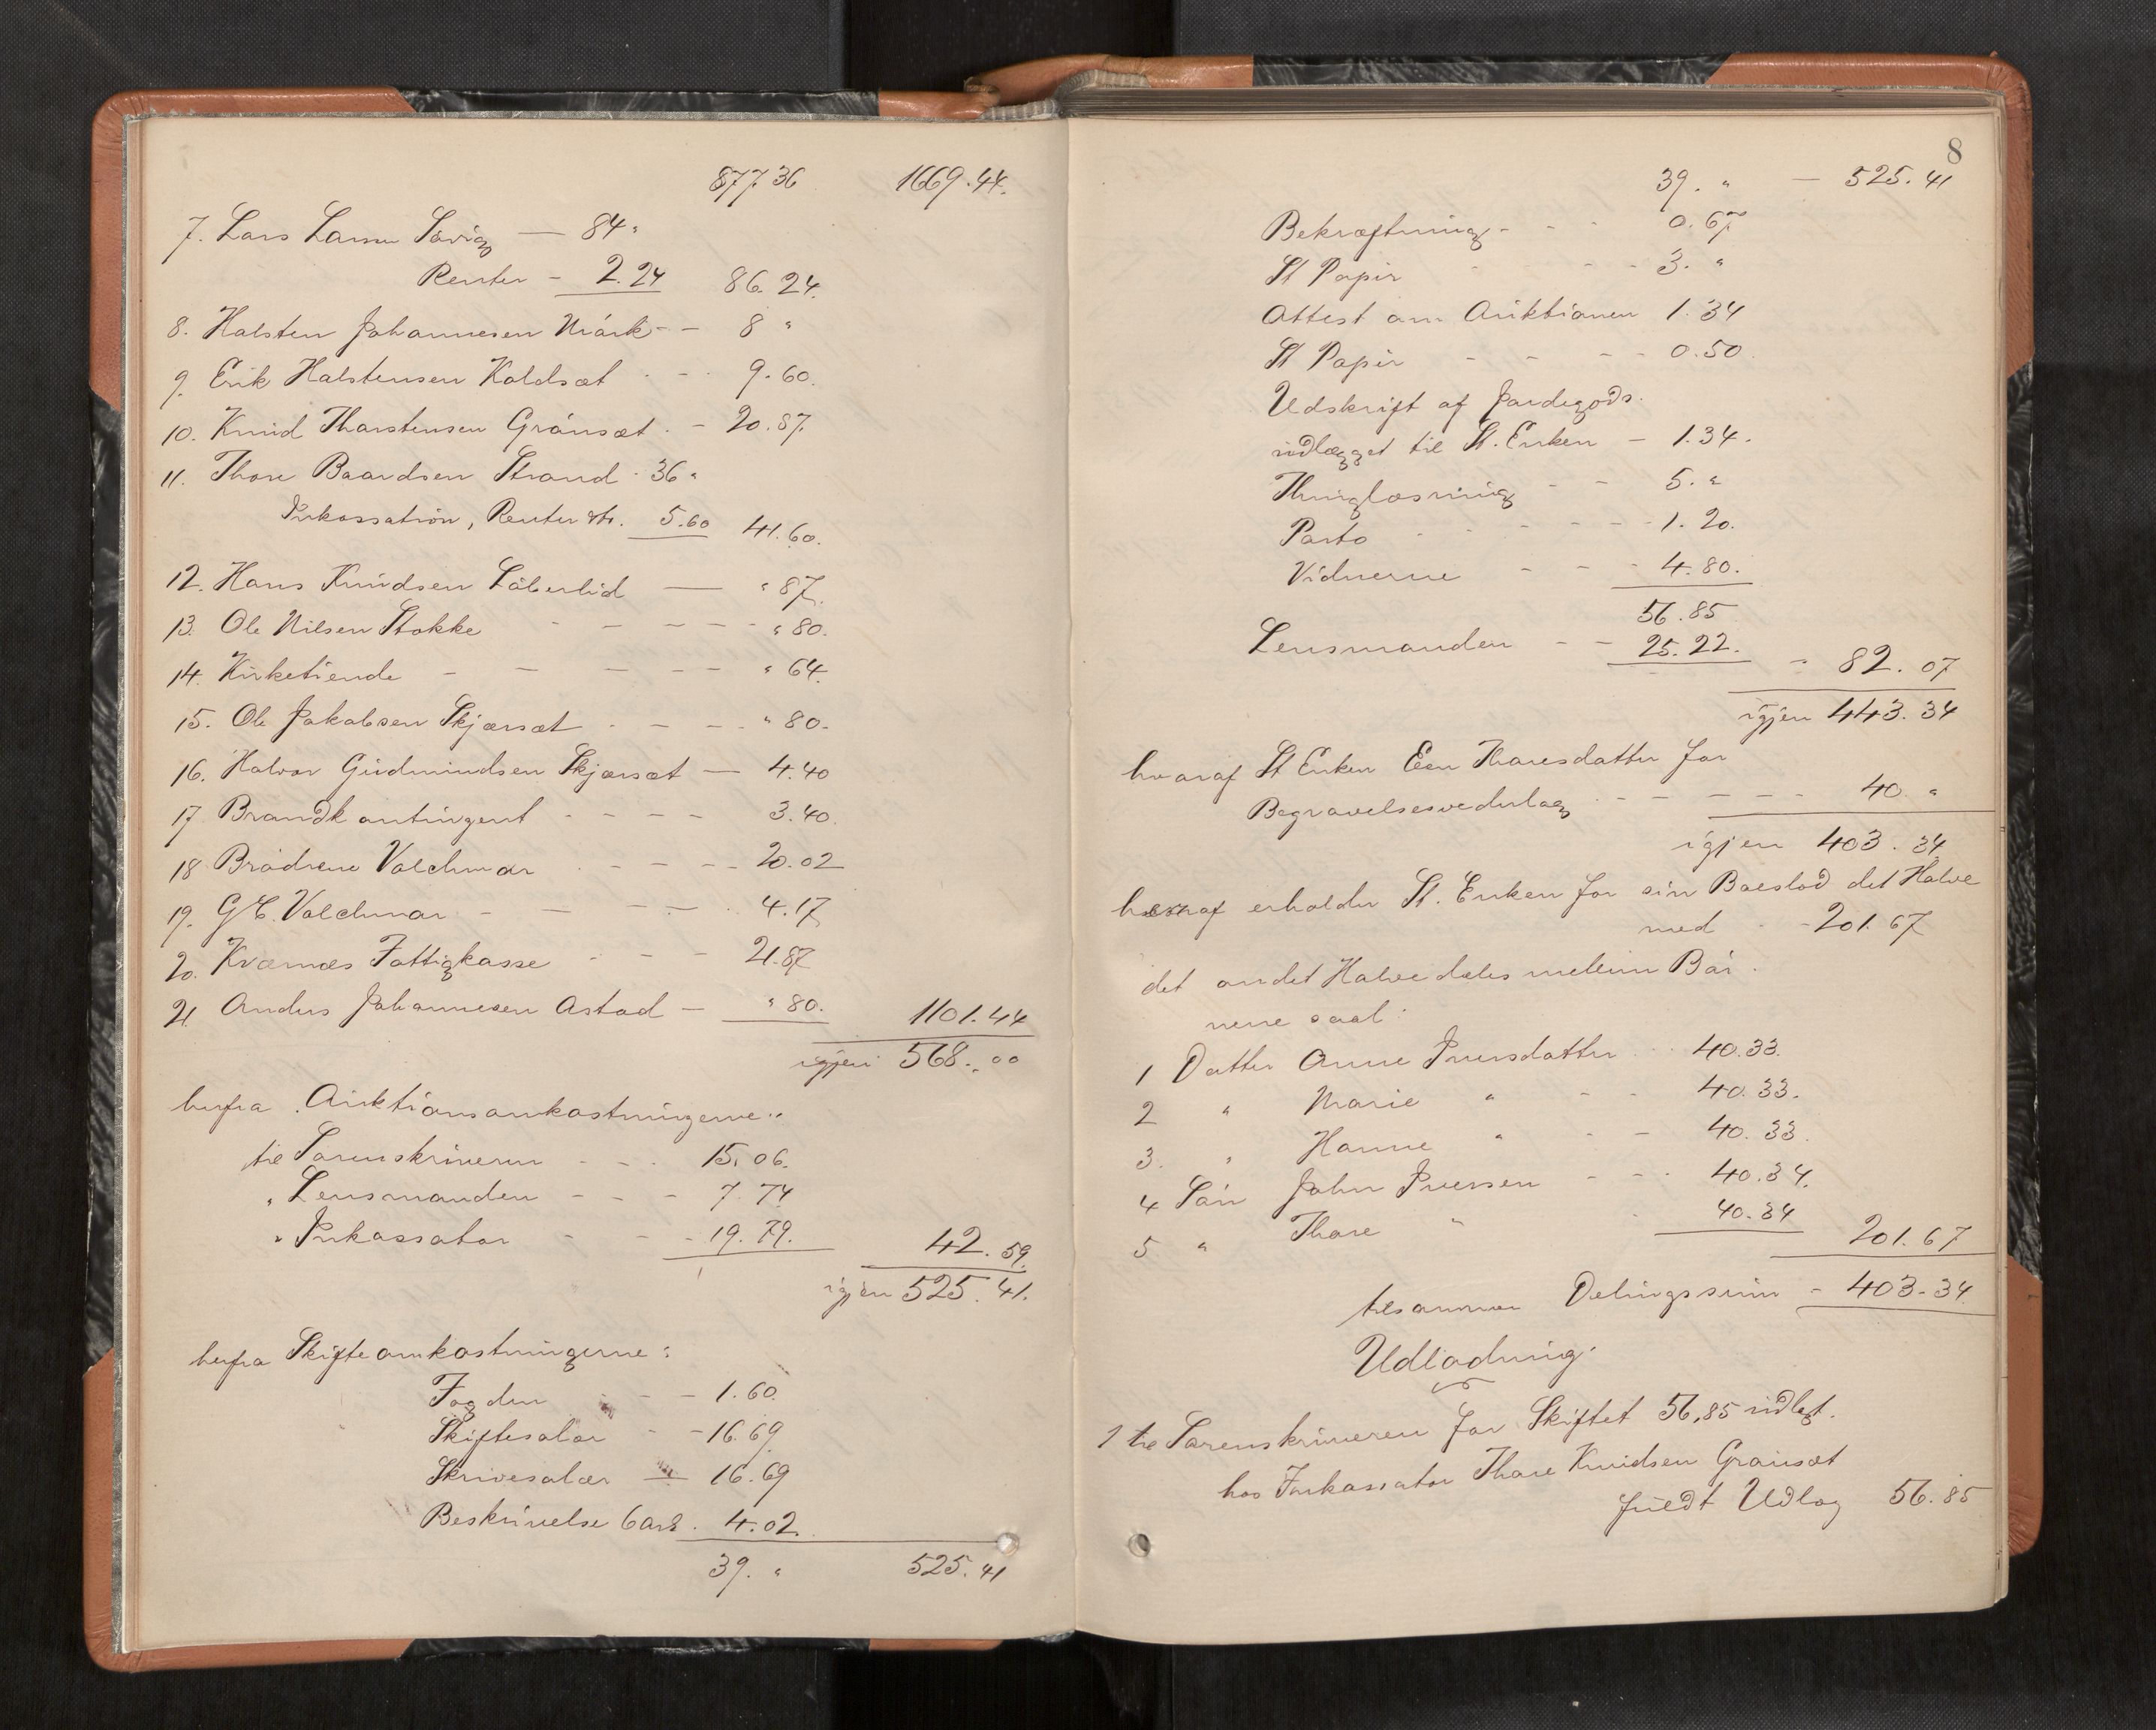 877 36 1669.44.
7. Lars Larsen Søvig — 84 "
Renter - 2.24 86.24.
8. Halsten Johannesen Mørk - - 8 "
9. Erik Halstensen Koldsæt - - 9.60.
10. Knud Thorstensen Grønsæt - 20.87.
11. Thore Baardsen Strand - 36 "
Inkassation, Renter etc. 5.60 41.60.
12. Hans Knudsen Løberlid — " 87.
13. Ole Nilsen Stokke - - - - - " 80.
14. Kirketiende - - - - - " 64.
15. Ole Jakobsen Skjærsæt - - - - " 80.
16. Halvor Gudmundsen Skjærsæt — 4.40
17. Brandkontingent - - - - 3.40.
18. Brødrene Volckmar - - - - 20.02
19. G E. Volckmar - - - - 4.17
20. Kværnæs Fattigkasse - - - 21.87
21. Anders Johannesen Astad - " 80. 1101.44
igjen 568.00
herfra Auktionsomkostningerne:
til Sorenskriveren - - - 15.06.
" Lensmanden - - - 7.74
" Inkassator - - - 19.79. 42.59.
igjen 525.41.
herfra Skifteomkostningerne:
Fogden - - - 1.60.
Skiftesalær - - 16.69
Skrivesalær — 16.69
Beskrivelse 6 ark. 4.02.
39. " 525.41
8
39. " — 525.41
Bekræftning - - - 0.67
St Papir - - - 3. "
Attest om Auktionen 1.34
St Papir - - - - 0.50.
Udskrift af Jordegods
udlægget til St. Enken - 1.34.
Thinglæsning - - 5. "
Porto - - - - - 1.20.
Vidnerne - - - 4.80.
56.85
Lensmanden - - 25.22. - 82.07
igjen 443.34
hvoraf St Enken Thoresdatter for
Begravelsesvederlag - - - - - 40 "
igjen 403.34
heraf erholder St. Enken for sin Boeslod det Halve
med - - 201.67
det andet Halve deles mellem Bør-
nene saal:
1 Datter Anne Iversdatter - 40.33.
2 " Marie " - - 40.33.
3. " Hanne " - - 40.33.
4 Søn John Iversen - - - 40.34.
5 " Thore " - 40.34 201.67
tilsammen Delingssum - 403.34
Udlodning.
1 til Sorenskriveren for Skiftet 56,85 udlagt.
hos Inkassator Thore Knudsen Grønsæt
fuldt Udlæg 56.85